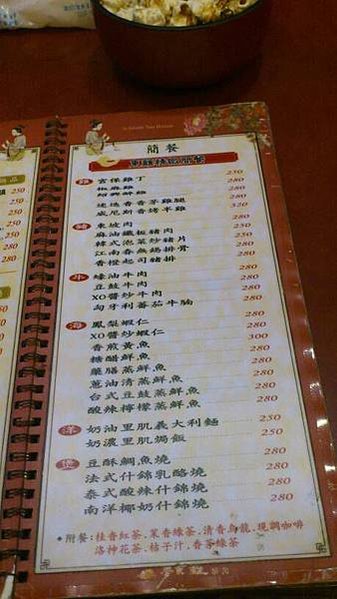 簡餐
雞 宮保雞丁 250
椒麻雞 280
紹興醉雞 280
迷迭香香茅雞腿 250
威尼斯香烤半雞 320
豬 東坡肉 250
麻油鐵板豬肉 250
韓式泡菜炒豬片 250
江南香無錫排骨 280
香橙起司豬排 280
牛 蠔油牛肉 280
豆豉牛肉 280
XO醬炒牛肉 280
匈牙利番茄牛腩 280
海 鳳梨蝦仁 280
XO醬炒蝦仁 300
香煎黃魚 280
糖醋鮮魚 280
藥膳蒸鮮魚 280
蔥油清蒸鮮魚 280
台式豆豉蒸鮮魚 280
酸辣檸檬蒸鮮魚 280
洋 奶油里肌義大利麵 250
奶濃里肌焗飯 250
煲 豆酥鯛魚燒 280
法式什錦乳酪燒 280
泰式酸辣什錦燒 280
南洋椰奶什錦燒 280
附餐:桂香紅茶.茉香綠茶.清香烏龍.現調咖啡
洛神花茶.桔子汁.香茅綠茶